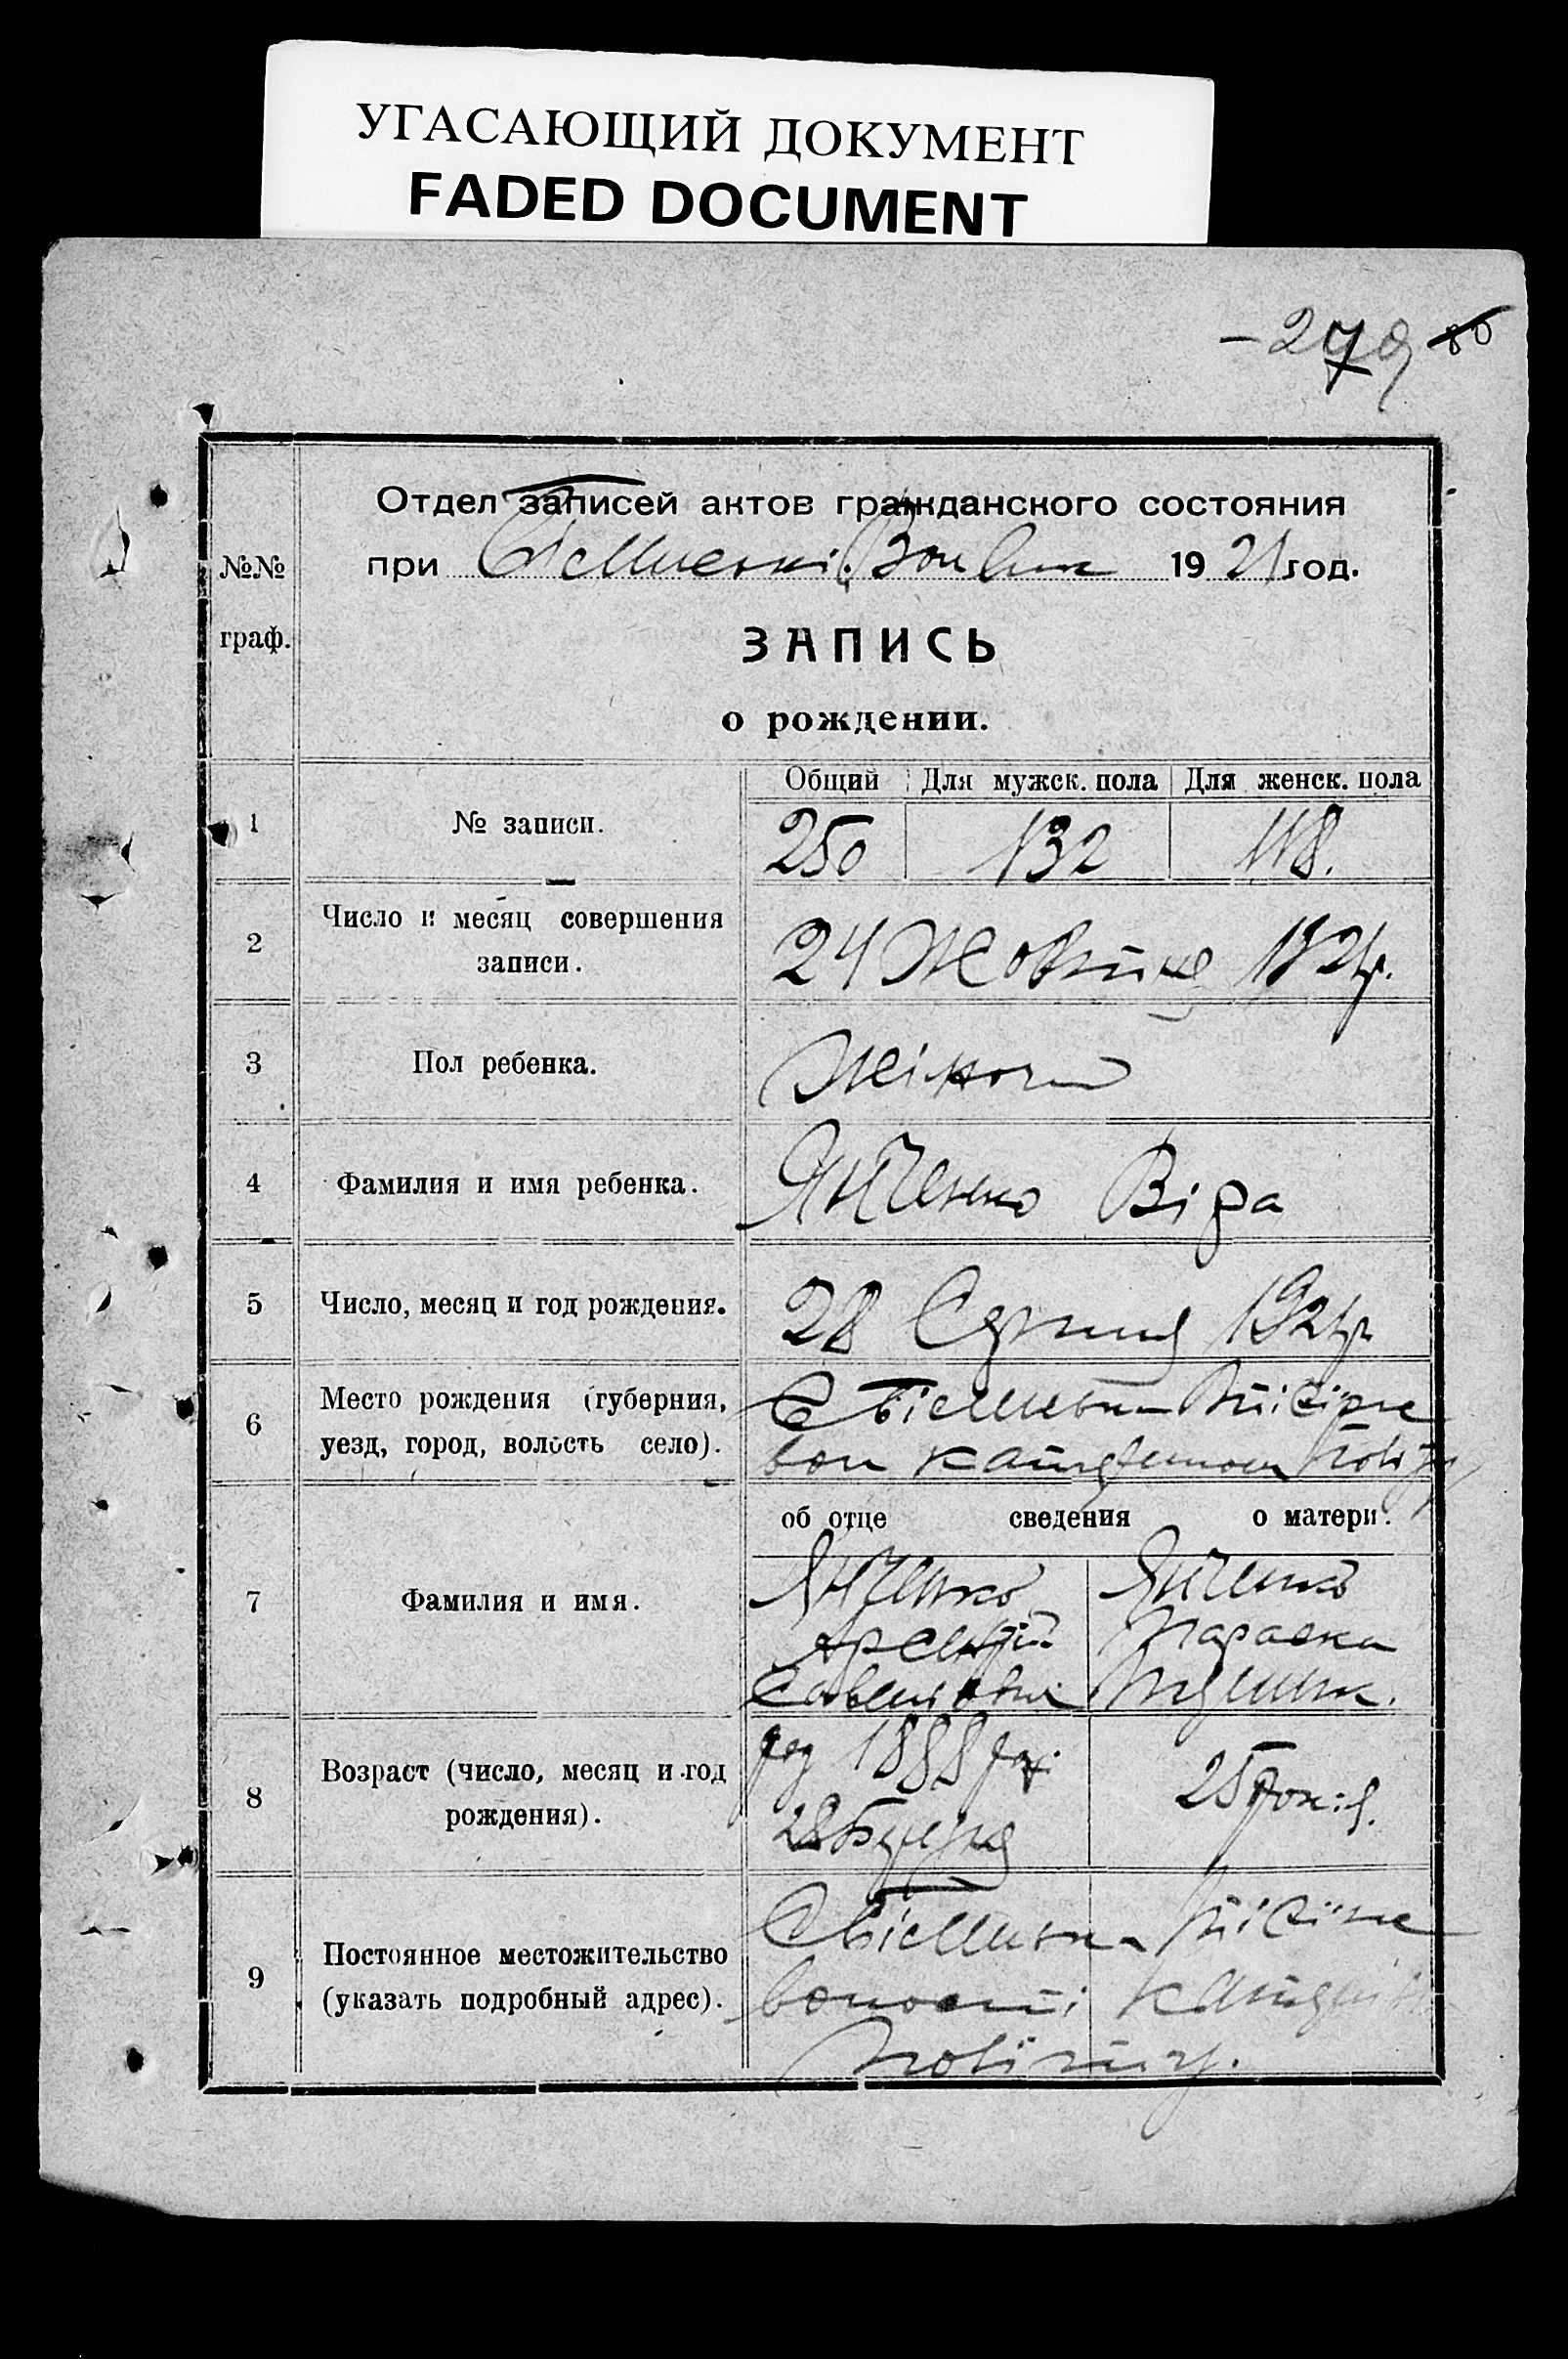 УГАСАЮЩИЙ ДОКУМЕНТ
FADED DOCUMENT
279 80
Отдел записей актов гражданского состояния
при 1921 год.
№№
граф.
ЗАПИСЬ
о рождении.
Общий Для мужск. пола Для женск. пола
1 № записи. 250 132 118.
2 Число и месяц совершения
записи.
24 Жовтня 1921р.
3 Пол ребенка. Жіноча
4 Фамилия и имя ребенка. Янченко Віра
5 Число, месяц и год рождения. 28 Серпня 1921р
6 Место рождения (губерния,
уезд, город, волость село).
об отце сведения о матери.
7 Фамилия и имя.
Янченко Янченко
Арсентій Параска
8 Возраст (число, месяц и год
рождения).
1888 25 років.
28
9 Постоянное местожительство
(указать подробный адрес).
волости